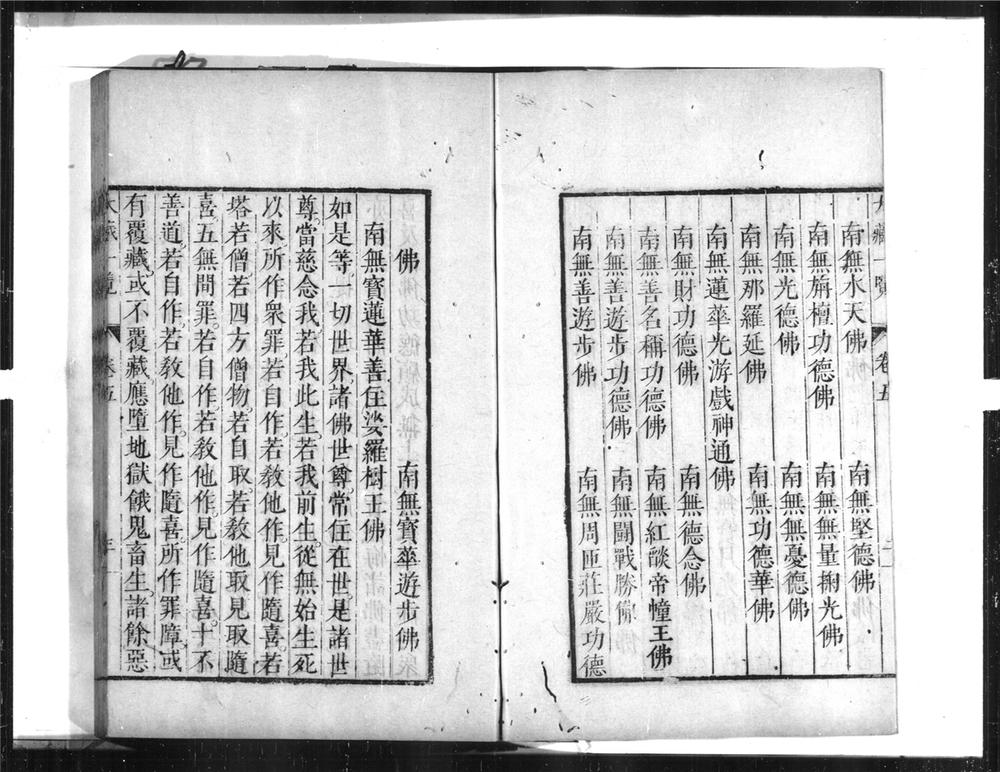 大藏一覽 卷五
南無水天佛 南無堅德佛
南無旃檀功德佛 南無無量掬光佛
南無光德佛 南無無憂德佛
南無那羅延佛 南無功德華佛
南無蓮華光游戲神通佛
南無財功德佛 南無德念佛
南無善名稱功德佛 南無紅燄帝幢王佛
南無善遊步功德佛 南無鬭戰勝佛
南無善遊步佛 南無周匝莊嚴功德
佛 南無寶華遊步佛
南無寶蓮華善住娑羅樹王佛
如是等一切世界諸佛世尊常住在世是諸世
尊當慈念我若我此生若我前生從無始生死
以來所作衆罪若自作若教他作見作隨喜若
塔若僧若四方僧物若自取若教他取見取隨
喜五無間罪若自作若教他作見作隨喜十不
善道若自作若教他作見作隨喜所作罪障或
有覆藏或不覆藏應墮地獄餓鬼畜生諸餘惡
大藏一覽 卷五